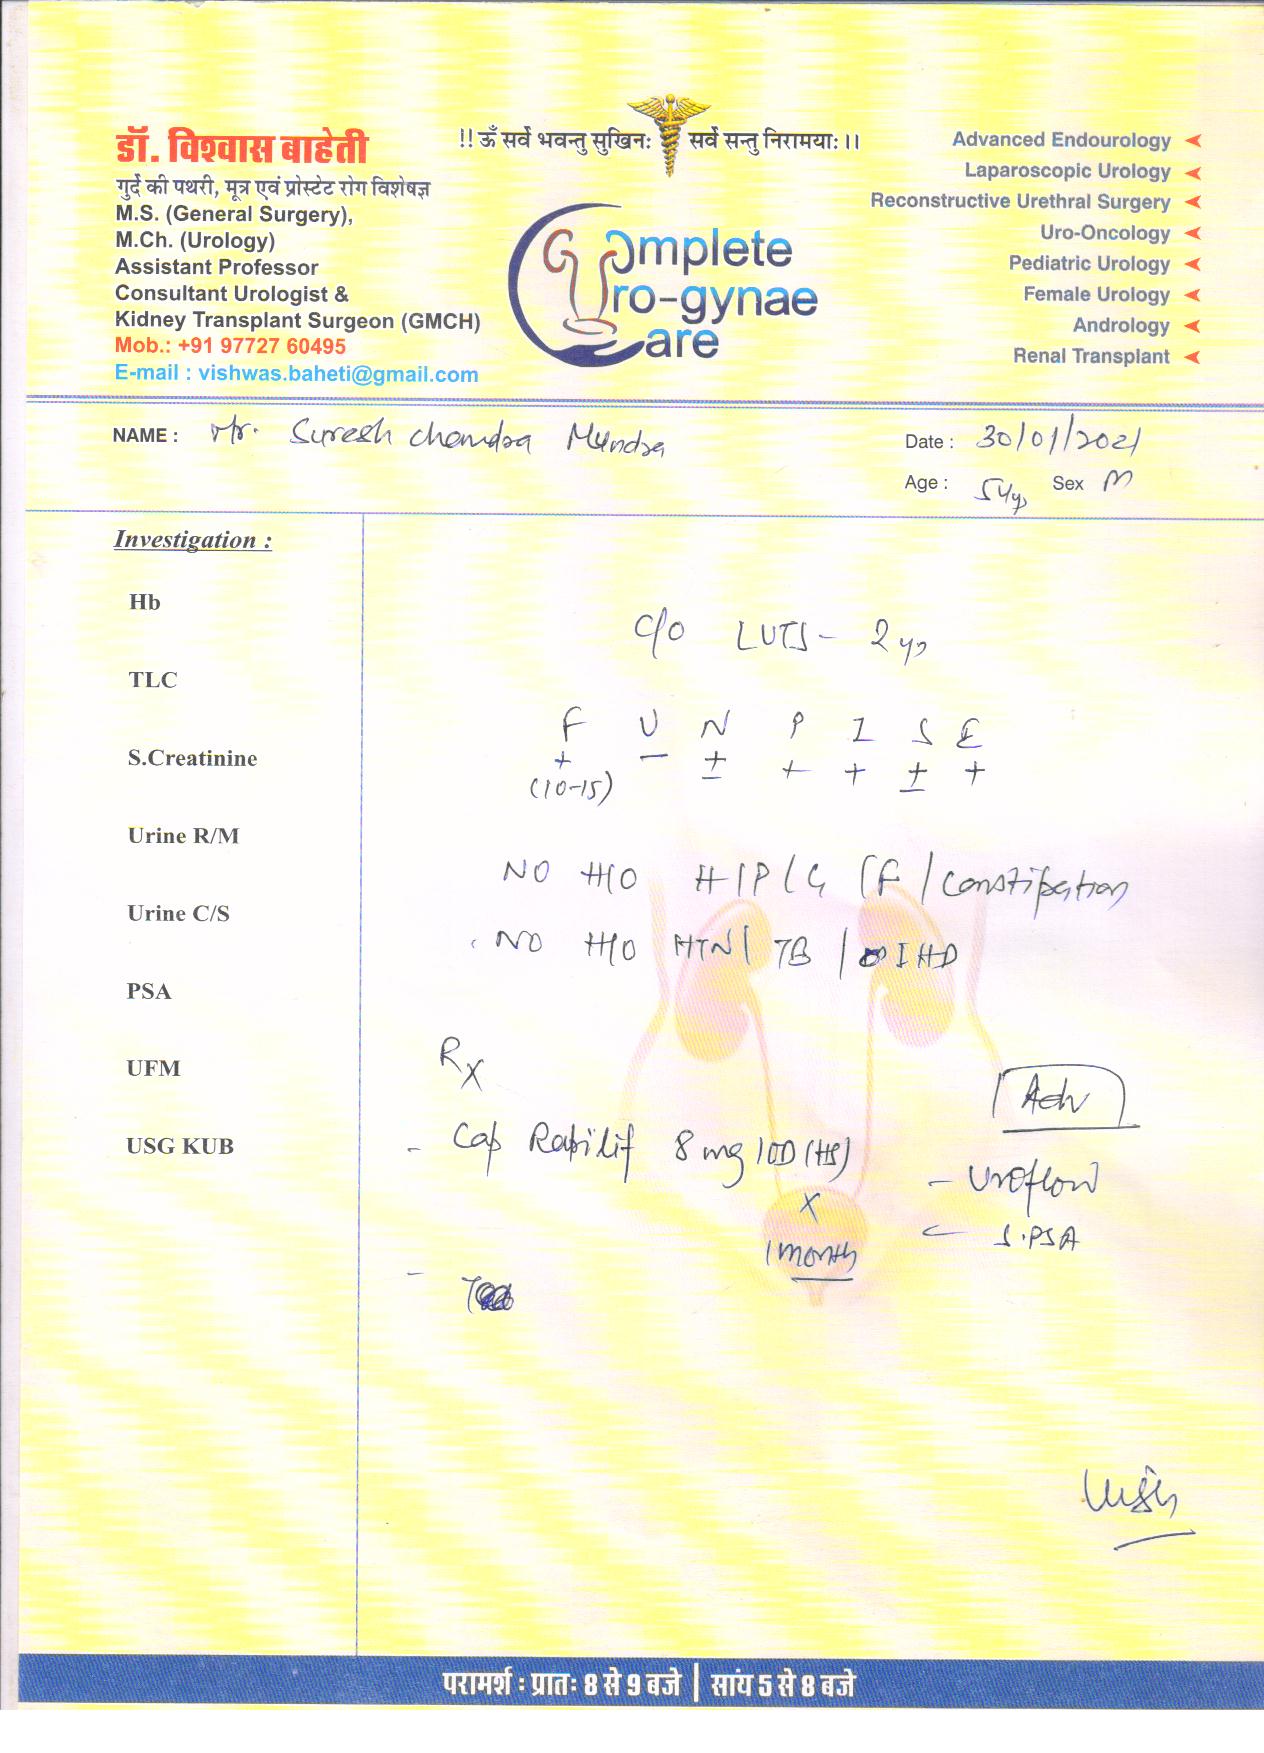 !! ॐ सर्वे भवन्तु सुखिनः सर्वे सन्तु निरामयाः ।।
डॉ. विश्वास बाहेती
गुर्दे की पथरी, मूत्र एवं प्रोस्टेट रोग विशेषज्ञ
M.S. (General Surgery),
M.Ch. (Urology)
Assistant Professor
Consultant Urologist &
Kidney Transplant Surgeon (GMCH)
Mob.: +91 97727 60495
E-mail : vishwas.baheti@gmail.com
Complete
Uro-gynae
Care
Advanced Endourology
Laparoscopic Urology
Reconstructive Urethral Surgery
Uro-Oncology
Pediatric Urology
Female Urology
Andrology
Renal Transplant
NAME : Mr. Suresh Chandra Mundra
Date : 30/01/2021
Age : 54y Sex M
Investigation :
Hb
TLC
S.Creatinine
Urine R/M
Urine C/S
PSA
UFM
USG KUB
C/O LUTS - 2 yr
F U N P I S E
+ - ± + + ± +
(10-15)
NO H/O H/P/G/F/Constipation
NO H/O HTN/ TB / IHD
Rx
- Cap Rapilif 8 mg 1OD (HS)
X
1 month
-
Adv
- Uroflow
- S.PSA
परामर्श : प्रातः 8 से 9 बजे | सांय 5 से 8 बजे